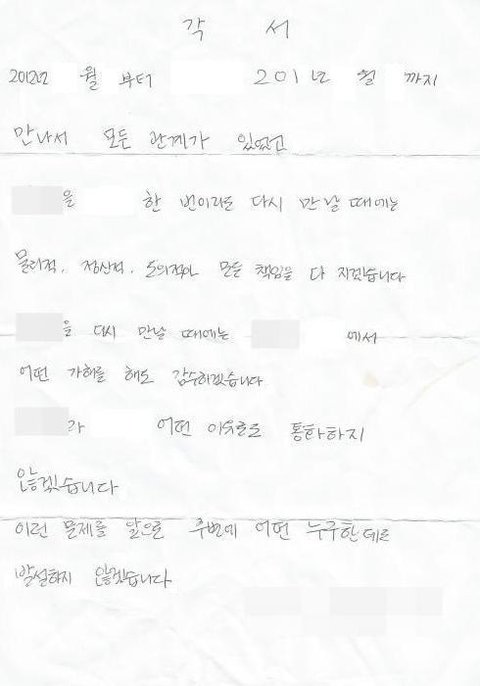 각 서
2012년 월 부터 201 년 월 까지
만나서 모든 관계가 있었고
을 한 번이라도 다시 만날 때에는
물리적, 정신적, 도의적인 모든 책임을 다 지겠습니다
을 다시 만날 때에는 에서
어떤 가혜를 해도 감수하겠습니다
가 어떤 이유로도 통화하지
않겠습니다
이런 문제를 앞으로 주변에 어떤 누구한테도
발설하지 않겠습니다